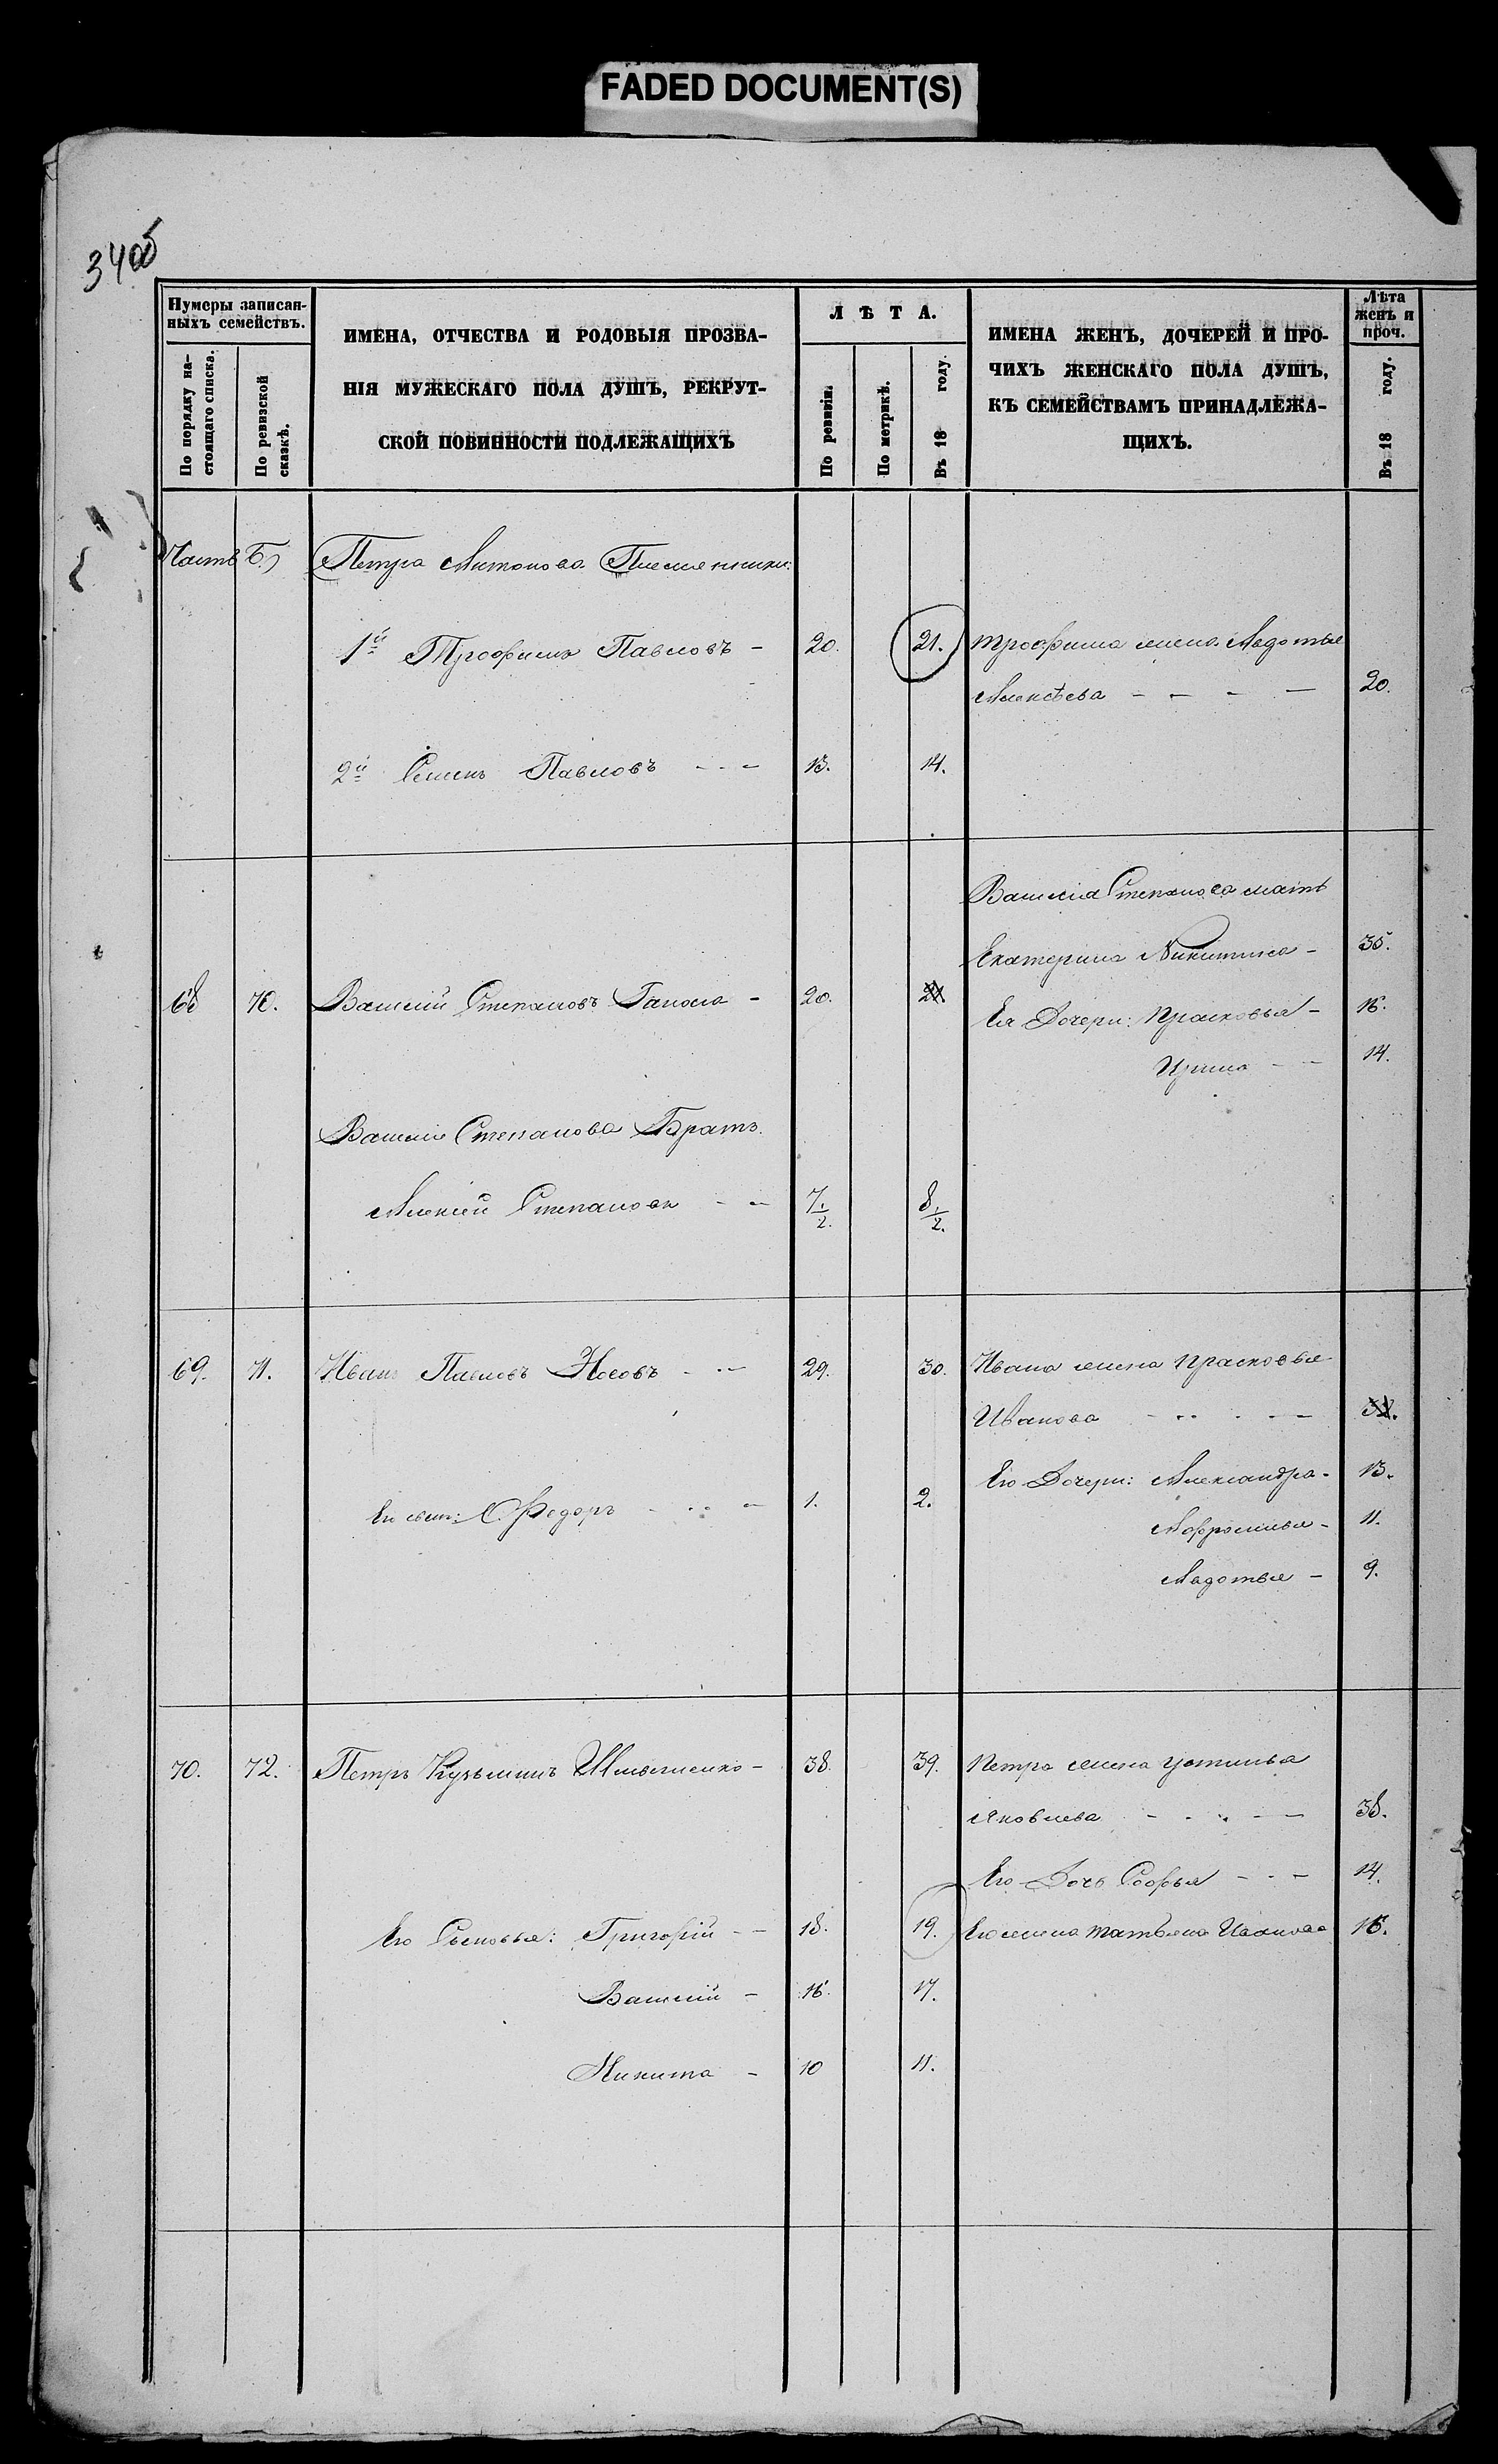 FADED DOCUMENT(S)
34 об
Нумеры записан-
ныхъ семействъ.
По порядку на-
стоящаго списка.
По ревизской
сказкѣ.
ИМЕНА, ОТЧЕСТВА И РОДОВЫЯ ПРОЗВА-
НІЯ МУЖЕСКАГО ПОЛА ДУШЪ, РЕКРУТ-
СКОЙ ПОВИННОСТИ ПОДЛЕЖАЩИХЪ
ЛѢТА.
По ревизіи.
По метрикѣ.
Въ 18 году.
ИМЕНА ЖЕНЪ, ДОЧЕРЕЙ И ПРО-
ЧИХЪ ЖЕНСКАГО ПОЛА ДУШЪ,
КЪ СЕМЕЙСТВАМЪ ПРИНАДЛЕЖА-
ЩИХЪ.
Лѣта
женъ и
проч.
Въ 18 году.
Часть Б.) Петра Антонова Племянники:
1й Трофимъ Павловъ - 20. 21. Трофима жена Авдотья
Алексѣева - - - - 20.
2й Семенъ Павловъ - - - 13. 14.
Василія Степанова мать
Екатерина Никитина - 35.
68 70. Василий Степановъ - 20. 21
Ея Дочери: Прасковья - 16.
Ирина - - 14.
Василія Степанова Братъ.
Алексей Степановъ - - 7./2. 8./2.
69. 71. Иванъ Павловъ Носовъ - - 29. 30. Ивана жена Прасковья
Иванова - - - - -
Его Дочери: Александра - 13.
Его сынъ: Федоръ - - - 1. 2.
Афросинья - 11.
Авдотья - 9.
70. 72. Петръ Кузьминъ - 38. 39. Петра жена Устинья
Яковлева - - - - 38.
Его Дочь Софья - - - 14.
Его Сыновья: Григорій - 18. 19. Его жена Татьяна Иванова 16.
Василій - 16. 17.
Никита - 10 11.